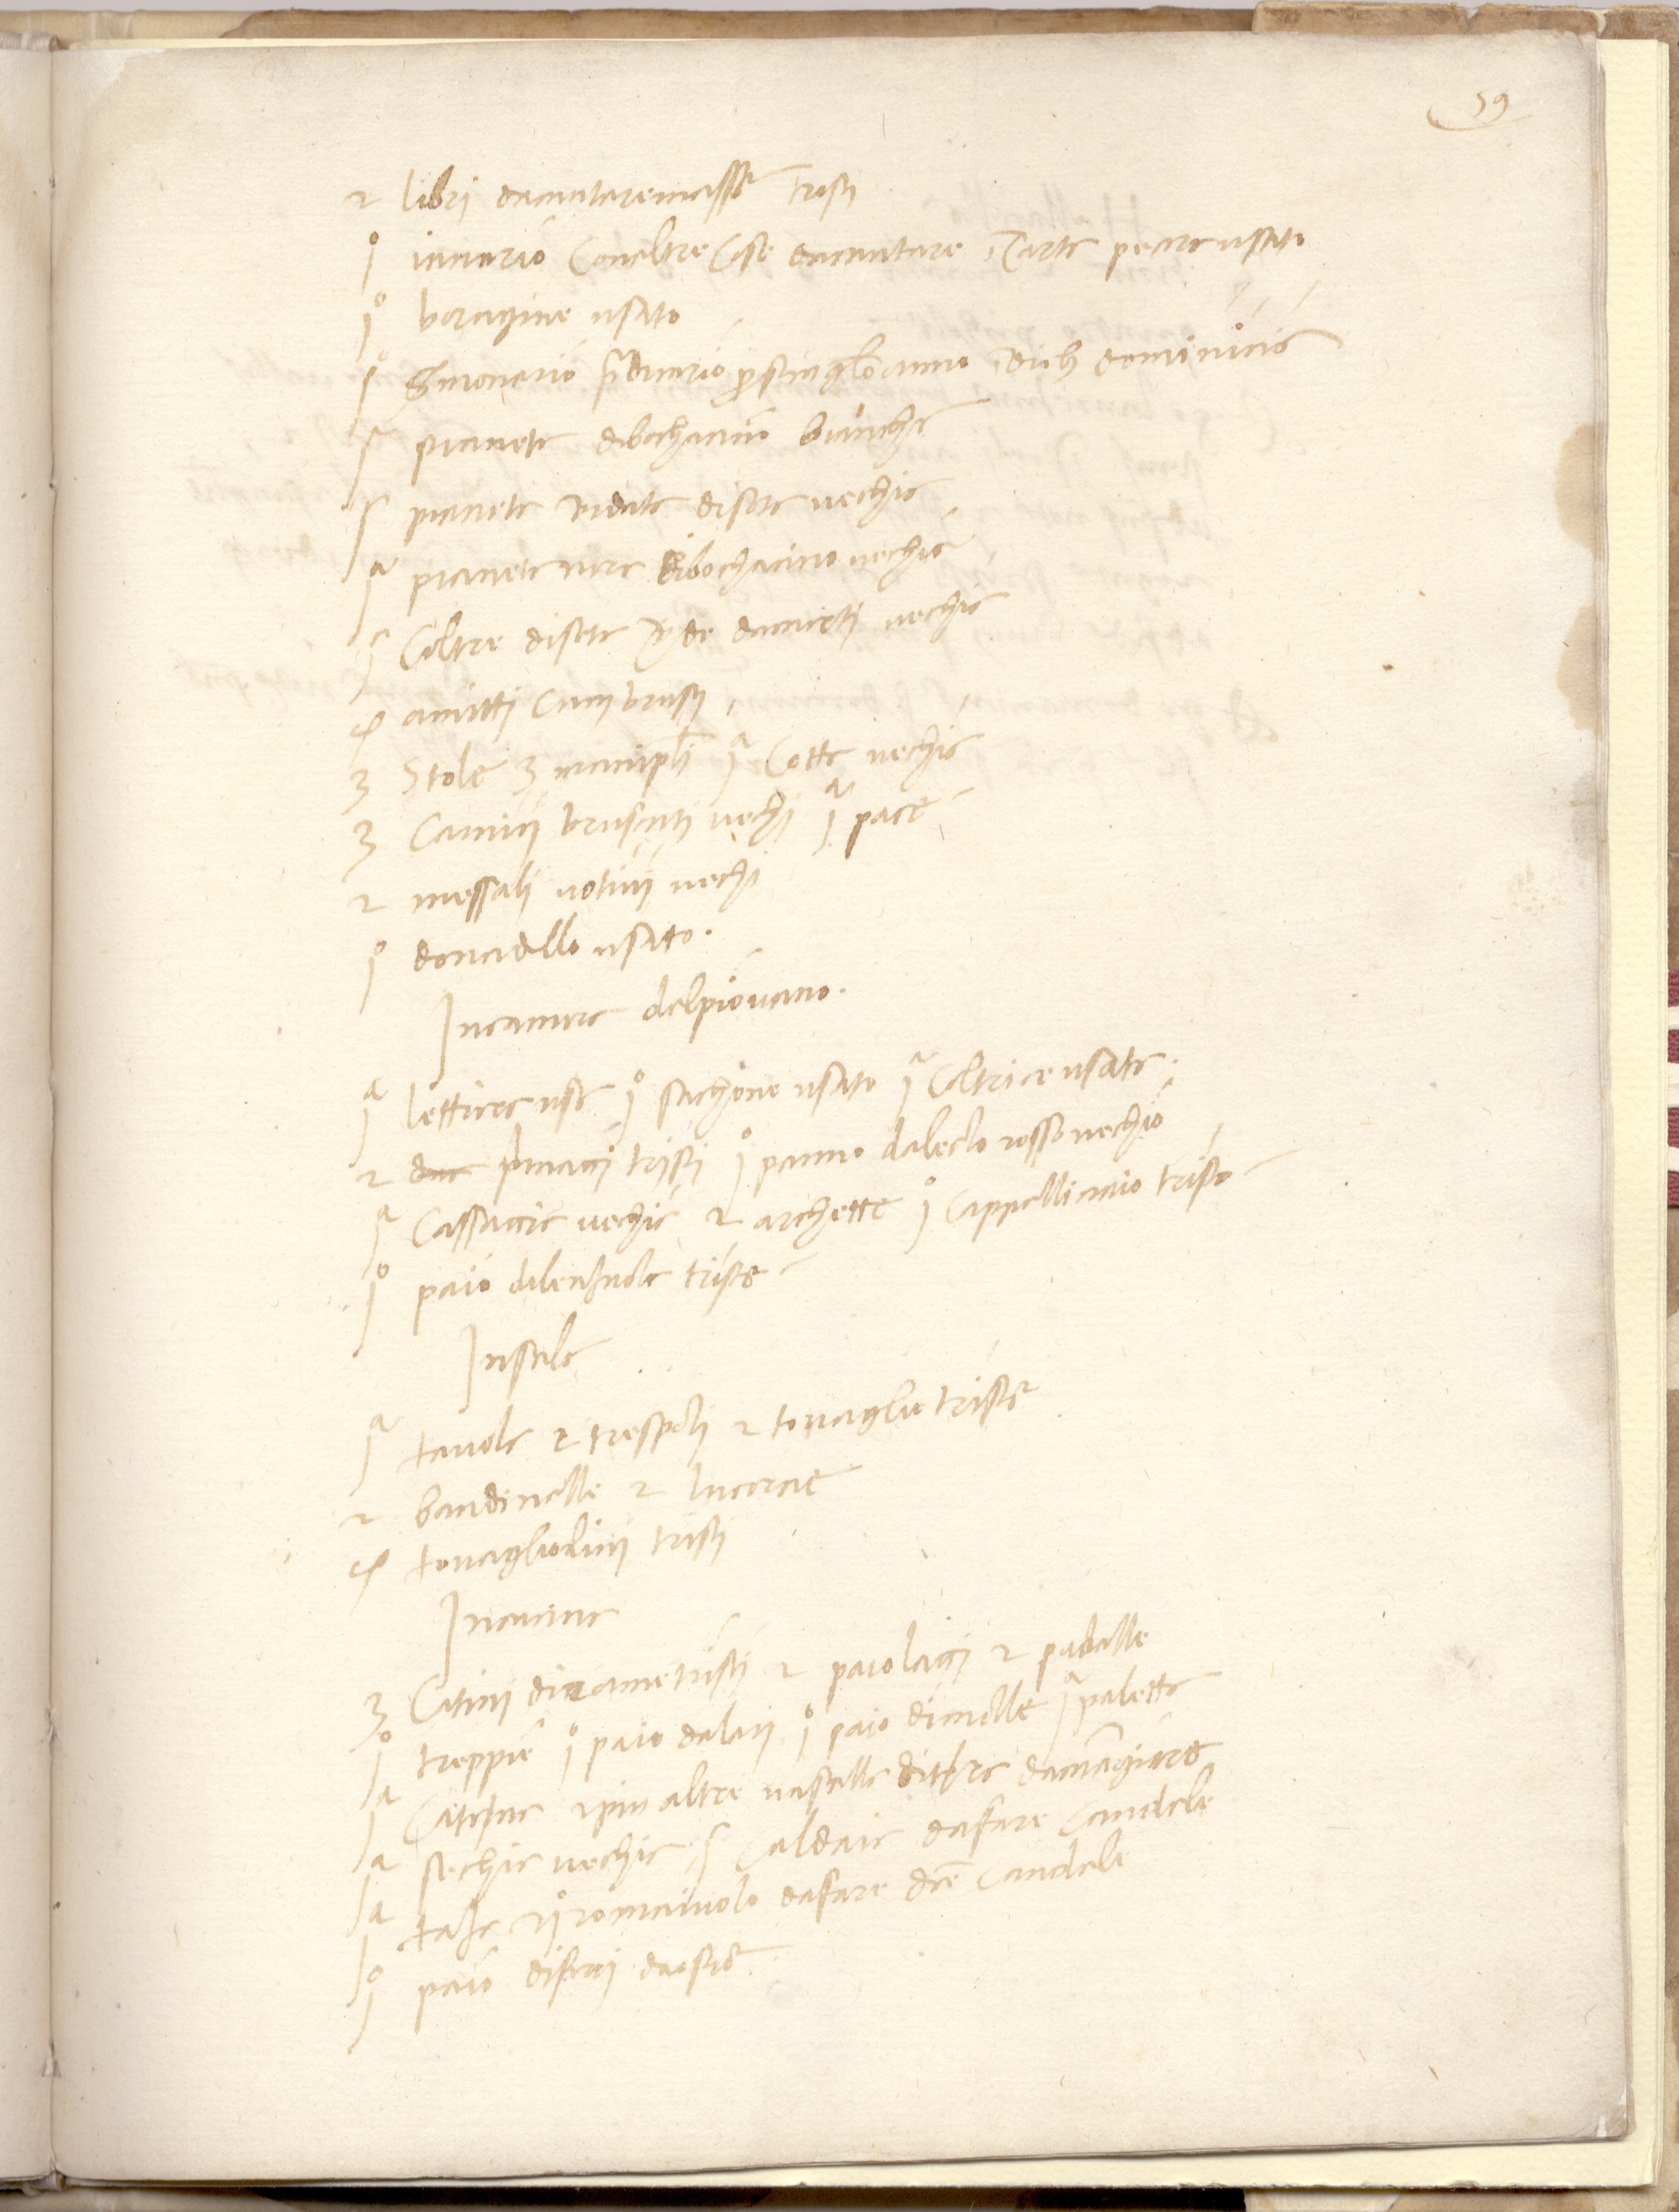 59
2 libri dacantaremessa tristi
j° innario con altre cose dacantare i carta pecora usato
j° boragine usato
j° Sermonario quadernario p anno dieb dominicis
jª pianeta dibochacino biancha
jª pianeta di seta vechia
jª pianeta nera dibochacino vechia
jª Coltre diseta da morti vechia
4 amitti combusti
3 Stole 3 manipli jª Cotta vechia
3 Camici brusciati vechi jª pace
2 messali votivi vechi
j° donadello usato.
Incamera delpiovano.
jª lettiera usa j° sachone usato jª Coltrice usata.
2 due piumacci tristi j° panno dalecto rosso vechio
jª Cassaccia vechia 2 archette j° Cappellinaio tristo
j° paio dilenzuola triste
Insala
jª tavola 2 trespoli 2 tovaglie triste
2 bandinelle 2 lucerne
4 tovagliolini tristi
Incucina
3 Catini dirame tristi 2 paiolacci 2 padelle
j° treppie j° paio dalari j° paio dimolle jª paletta
jª Catena 2 piu altre vasella diterra damangiare
jª sechia vechia jª Caldaia dafare candele
jª tafe j° romaiuolo dafare dce candele
j° paio diferri daostie